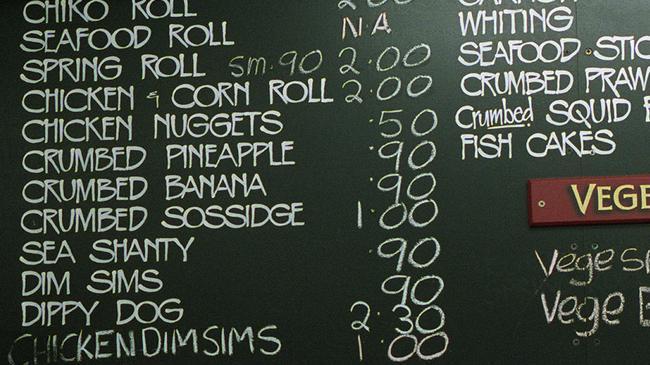 CHIKO ROLL 2.00
SEAFOOD ROLL NA
SPRING ROLL sm .90 2.00
CHICKEN & CORN ROLL 2.00
CHICKEN NUGGETS .50
CRUMBED PINEAPPLE .90
CRUMBED BANANA .90
CRUMBED SOSSIDGE 1.00
SEA SHANTY .90
DIM SIMS .90
DIPPY DOG 2.30
CHICKEN DIM SIMS 1.00
WHITING
SEAFOOD STIC
CRUMBED PRAW
Crumbed SQUID
FISH CAKES
VEGE
Vege
Vege